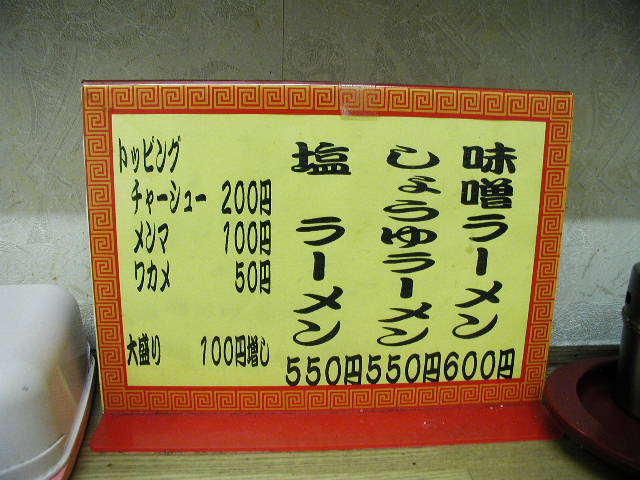 味噌ラーメン
600円
しょうゆラーメン
550円
塩 ラーメン
550円
トッピング
チャーシュー 200円
メンマ 100円
ワカメ 50円
大盛り 100円増し